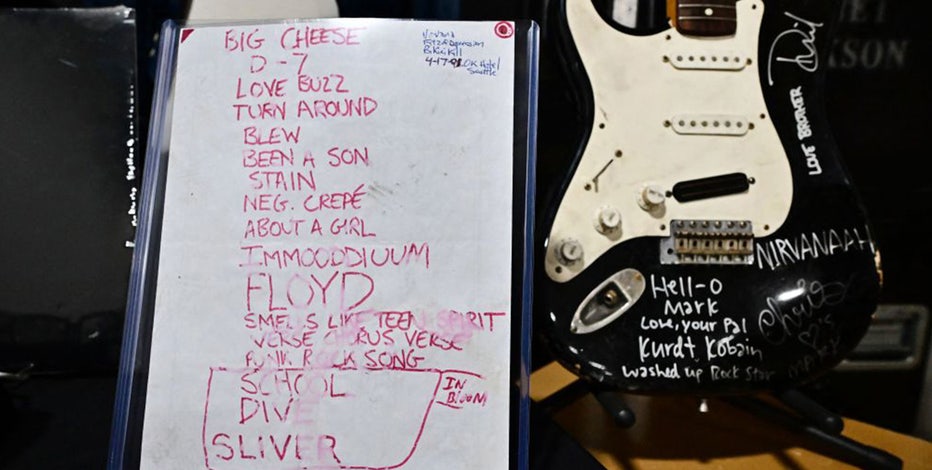 BIG CHEESE
D-7
LOVE BUZZ
TURN AROUND
BLEW
BEEN A SON
STAIN
NEG. CREPÉ
ABOUT A GIRL
IMMOODDIUUM
FLOYD
SMELLS LIKE TEEN SPIRIT
VERSE CHORUS VERSE
PUNK ROCK SONG
SCHOOL
DIVE
SLIVER
IN
BLOOM
Nirvana
Fitz of Depression
Bikini Kill
4-17-91 OK Hotel
Seattle
LOVE BROTHER
NIRVANAAH
Hell-o
Mark
Love, your pal
Kurdt Kobain
washed up Rock Star
KSON